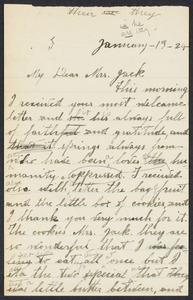 5 January-13-24
My Dear Mrs. Jack
This morning
I received your most welcome
letter and his always full
of faithful and gratitude, and
that it springs always from
who have been
manity oppressed. I received
also until letter the bag print
and the little box of cookies, and
I thank you very much for it.
The cookies Mrs. Jack they are
so wonderful that I was
to eat all once but I
ate the two special that
was little bitter, and